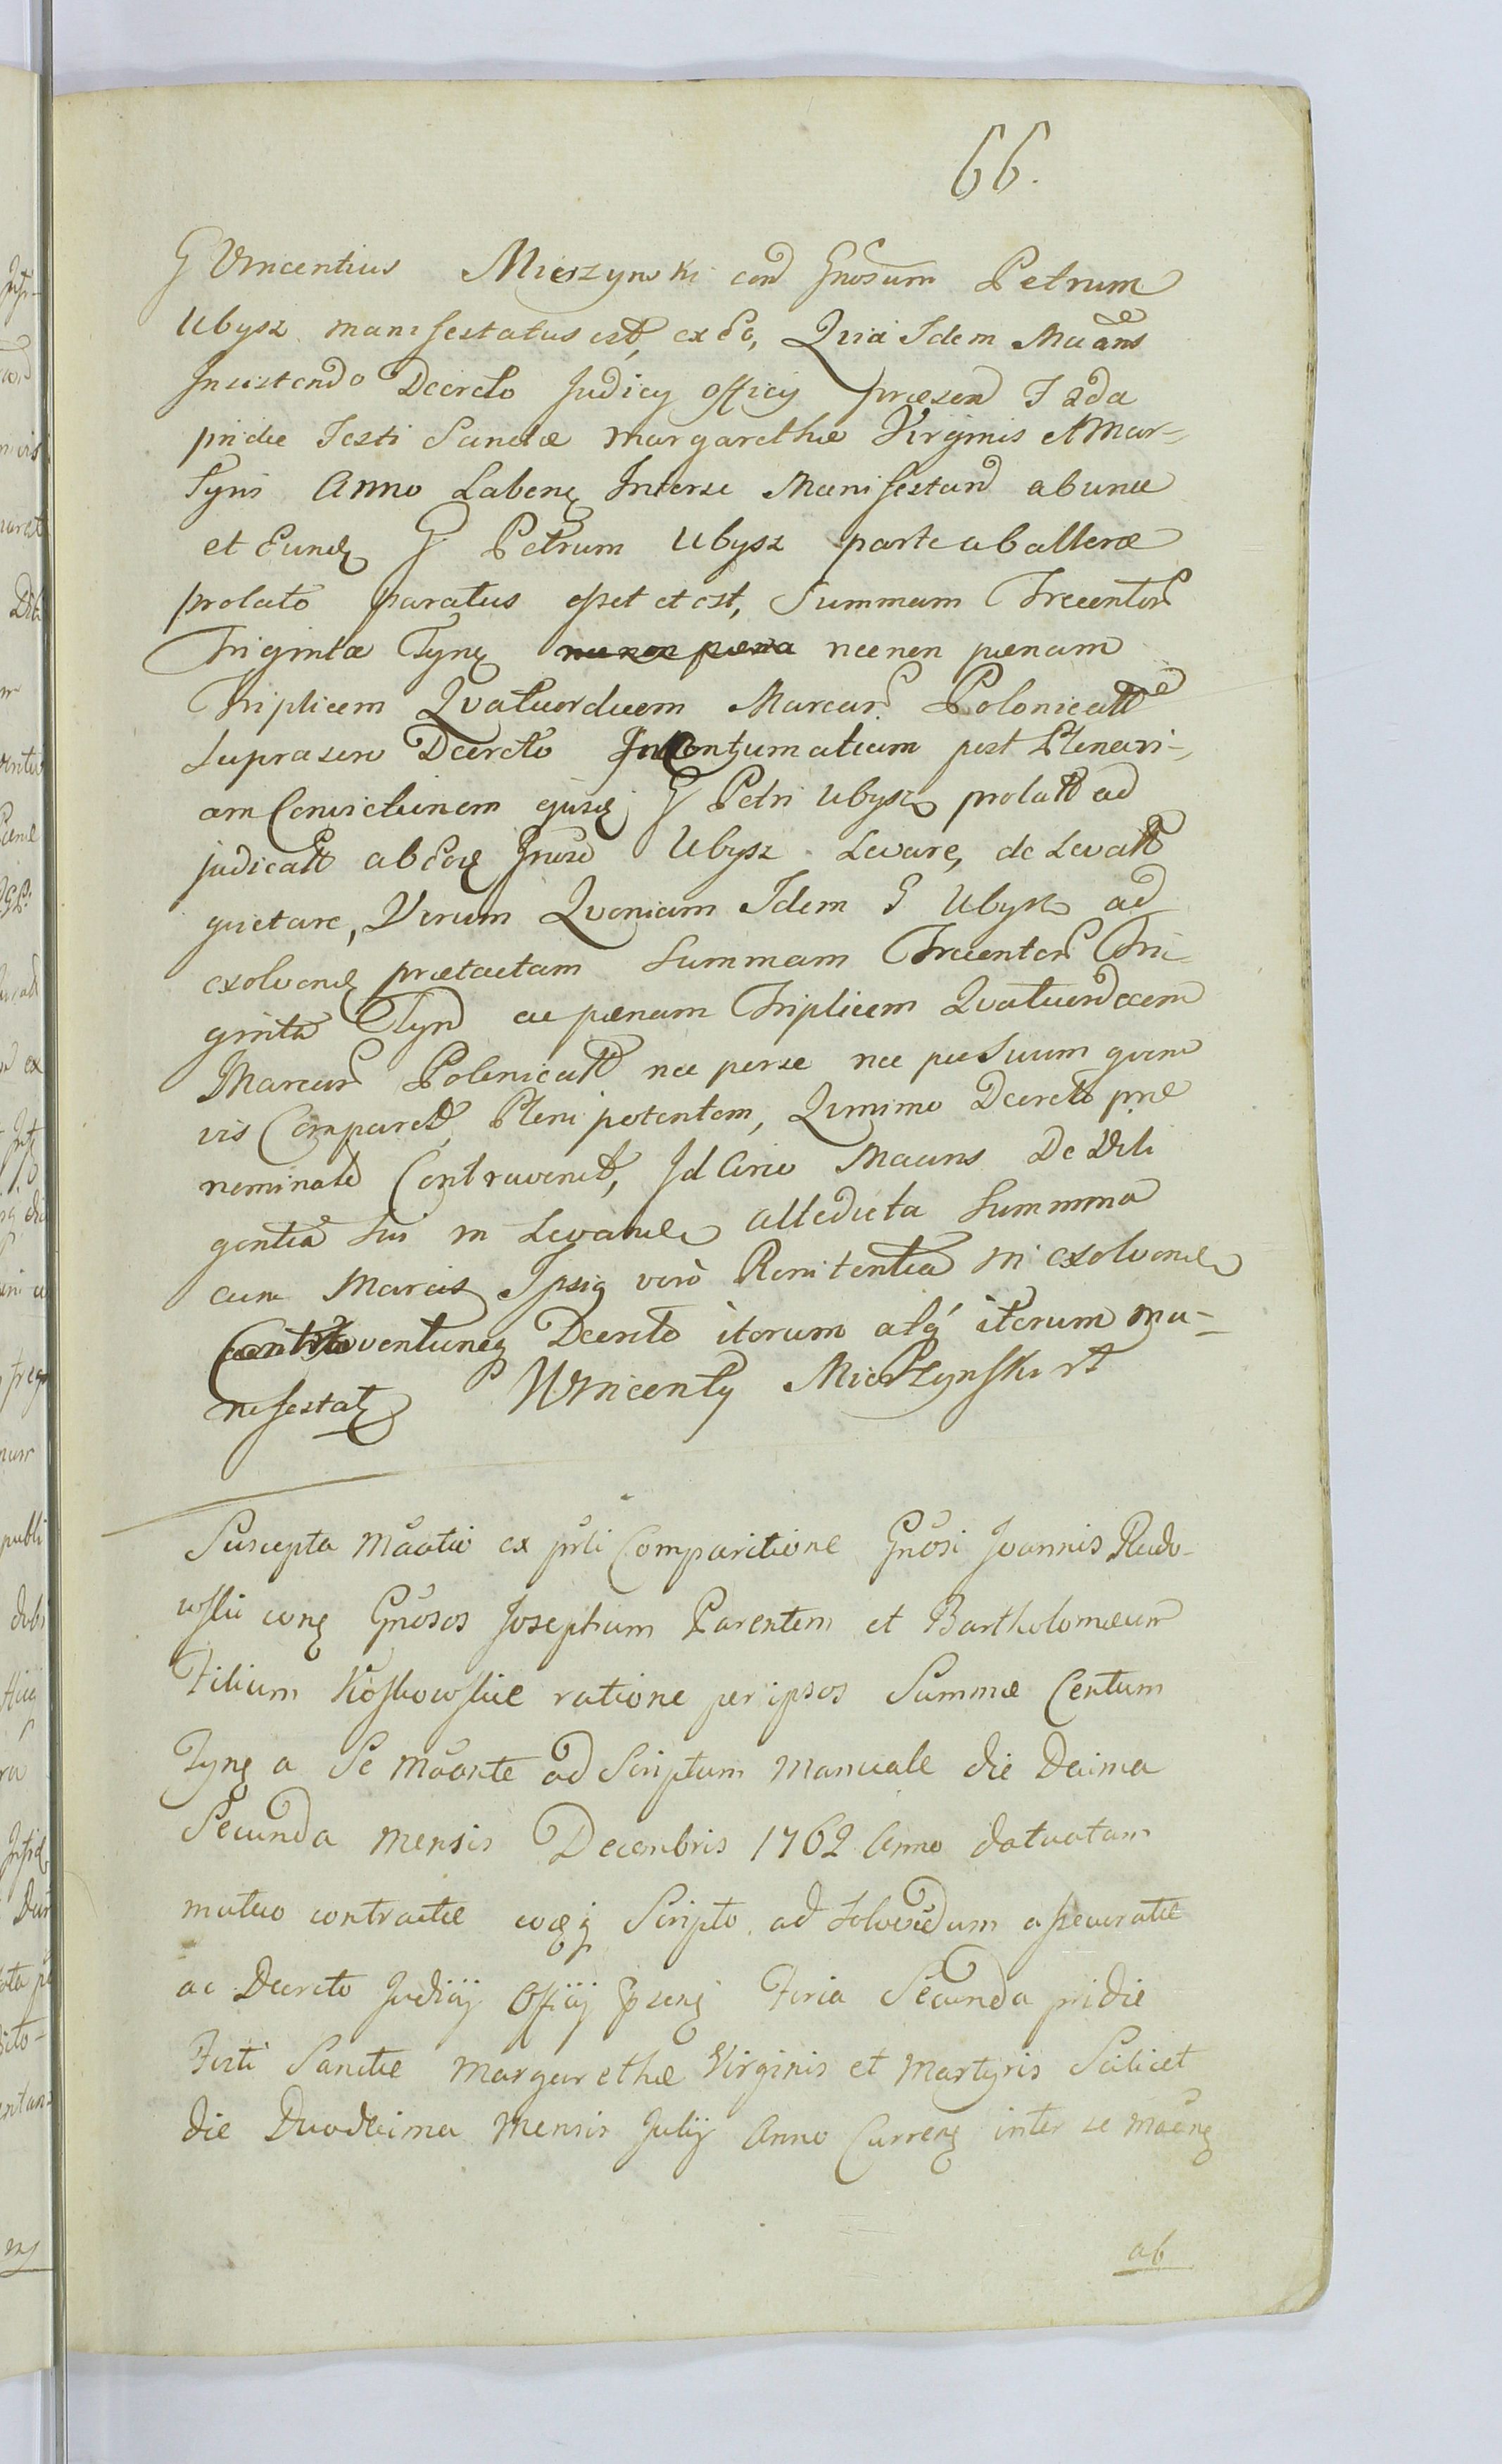 66.
G Vincentius Mierzynski con Gnosum Petrum
Ubysz manifestatus est, ex Eo, Quia Idem Maans
Insistendo Decreto Judicy officy praesen F 2da
pridie Festi Sanctae Margarethae Virginis et Mar-
tyris Anno Laben Inter se Manifestan ab una
et Eund G Petrum Ubysz parte ab altera
prolato paratus esset et est, Summam Trecentor
Triginta Tyn necnon paenam
Triplicem Quatuordecem Marcar Polonicall
suprascri Decreto In Contumaciam post Plenari-
am Convictionem ejusd G Petri Ubysz prolatt ad
judicatt ab Eod Gnoso Ubysz Levare, de Levatt
quietare, Verum Quoniam Idem G Ubysz ad
exolvend praetactam Summam Trecentor Tri
ginta Tyn ac paenam Triplicem Quatuordecem
Marcar Polonicall nec per se nec per Suum quem
vis Comparet, Plenipotentem, Quinimo Decreto prae
nominato Contravenit, Id Circo Maans De Dili
gentia Sui in Levanda attedicta Summma
cum Marcis Ipsiq vero Renitentia in exolvenda
Contraventioneq Decreto iterum atq iterum ma-
nifestat Wincenty Mierzynski
Suscepta Maatio ex prsti Comparitione Gnosi Joannis Rudo-
wski con Gnosos Josephum Parentem et Bartholomaeum
Filium Koskowskie ratione per ipsos Summae Centum
Tyn a Se Maante ad Scriptum Manuale die Decima
Secunda Mensis Decembris 1762 Anno datuatam
mutuo contractae eoq Scripto ad Solvendum asseveratae
ac Decreto Judicij Officij Praesen Feria Secunda pridie
Festi Sanctae Margarethae Virginis et Martyris Scilicet
die Duodecima Mensis Julij Anno Curren inter se Maan
ab